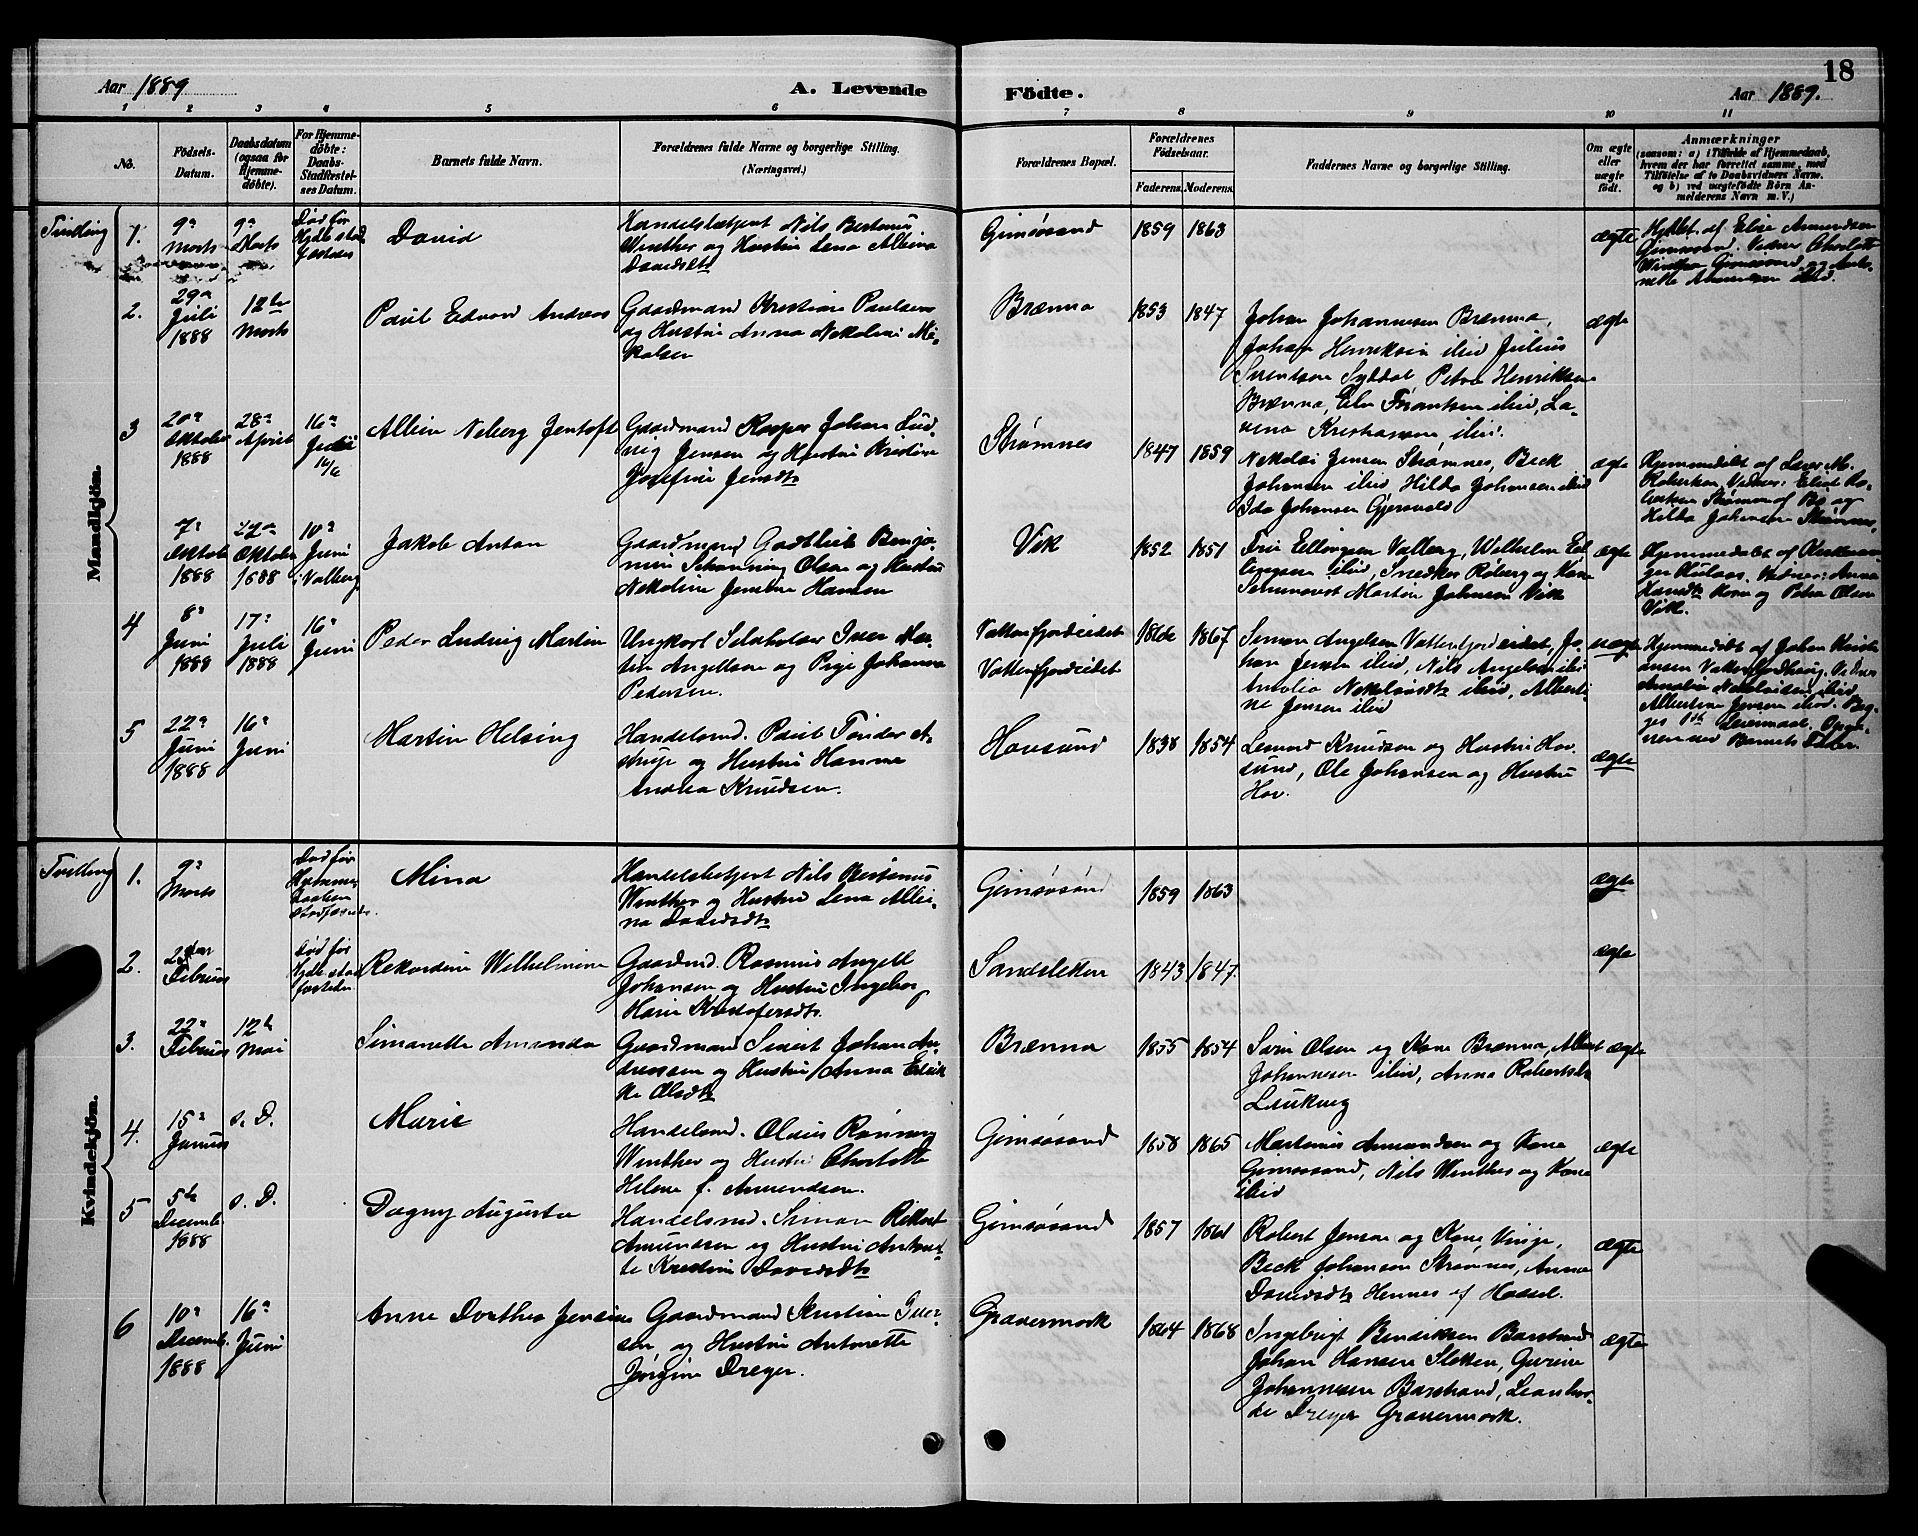 18
Aar 1889
A. Levende
Födte.
Aar 1889.
1 2 3 4 5 6
7 8 9 10 11
No.
Födsels-Datum.
Daabsdatum (ogsaa for Hjemmedöbte).
For Hjemmedöbte: Daabs-Stadfæstelses Datum.
Barnets fulde Navn.
Forældrenes fulde Navne og borgerlige Stilling. (Næringsvei.)
Forældrenes Bopæl.
Forældrenes Födselsaar.
Faderens. Moderens.
Faddernes Navne og borgerlige Stilling.
Om ægte eller uægte födt.
Anmærkninger
(saasom: a) i Tilfælde af Hjemmedaab, hvem der har forrettet samme, med Tilföielse af to Daabsvidners Navne, og b) ved uægtefödte Börn Anmelderens Navn m. V.)
Mandkjön.
Tvilling 1. 9de Marts 9de Marts Död før Hjdb. stadfæstedes
David
Handelsbetjent Nils Bertenius
Winther og Hustru Lena Albina
Davidsdtr
Gimsøsand 1859 1863 ægte
Hjdbt. af Elise Amundsen
Gimsøsand. Vidner Charlotte
Winther Gimsøsand og
2. 29de Juli 1888 12te Marts
Paul Edvard Andreas
Gaardmand Kristian Paulsen
og Hustru Anna Nekoline
Brænna 1853 1847
Johan Johannesen Brænna,
Johan Henriksen ibid, Julius
Sørentsen Syddal, Petra Henriksen
Brænna, Elen Frantsen ibid,
Kristiansen ibid.
ægte
3 20de Oktober 1888 28de April 16de Juni 16/6
Albin Neberg Jentoft
Gaardmand Kasper Johan Ludvig
Jensen og Hustru Kristine
Josefine Jensdtr
Strømnes 1847 1859
Nekolai Jensen Strømnes, Beck
Johansen ibid, Hilda Johansen ibid
Ida Johansen Gjersvold
ægte
Hjemmedøbt af
Robertsen. Vidner:
Strømnes af Bø og
Hilda Johansen Strømnes.
7de Oktober 1888 27de Oktober 1888 10de Juni i Valberg
Jakob Anton
Gaardmand Gotlieb Benjamin
Schønning Olsen og Hustru
Nekoline Jensine Hansen
Vik 1852 1851
Ellingsen Valberg, Wilhelm Ellingsen
ibid, Snedker Röberg og Kone
Martin Johnsen Vik
ægte
Hjemmedøbt af
Vidner: Anna
Hansdtr Kone og Petra Olsen
Vik.
4 8de Juni 1888 17de Juli 1888 16de Juni
Peder Ludvig Martin
Ungkarl Selvholder Iver Martin
Angellsen og Pige Johanna
Pedersen.
Vatterfjordeidet
Vatterfjordeidet
1866 1867
Simon Angelsen Vatterfjordeidet, Johan
Jensen ibid, Nils Angelsen ibid
Amalia Nekolaisdtr ibid, Albertine
Jensen ibid
uægte
Hjemmedøbt af Johan Kristiansen
Vatterfjordhaug. Vidner
Amalia Nekolaisen ibid,
Albertine Jensen ibid. Begges
1ste Leiermaal.
Barnets Fader.
5 22de Juni 1888 16de Juni
Martin Helsing
Handelsmd. Paul Tønder Astrup
og Hustru Hanna
Andrea Knudsen.
Hovsund 1838 1854
Knudsen og Hustru Hovsund,
Ole Johansen og Hustru
Hov.
ægte
Kvindekjön.
Tvilling 1. 9de Marts Död før Hjemmedaaben stadfæstedes.
Mina
Handelsbetjent Nils Bertenius
Winther og Hustru Lena Albina
Davidsdtr
Gimsøsand 1859 1863 ægte
2. Februar Död før Hjdb. stadfæstedes
Rekordine Wilhelmine
Gaardmd. Rasmus Angell
Johansen og Hustru Ingeborg
Marie Kristofersdtr.
Sandsletten 1843 1847. ægte
3. 22de Februar 12te Mai
Simanette Amanda
Gaardmand Sivert Johan Andreassen
og Hustru Anna Erikke
Olsdtr
Brænna 1855 1854
Sørn Olsen og Kone Brænna, Albert
Johannesen ibid, Anna Robertsdtr
ægte
4. 15de Januar s. D.
Marie
Handelsmd. Olaus Rønning
Winther og Hustru Charlotte
Helene f. Amundsen.
Gimsøsand 1858 1865
Martinus Amundsen og Kone
Gimsøsand, Nils Winther og Kone
ibid
ægte
5 5te Decemb. 1888 s. D.
Dagny Augusta
Handelsmd. Simon Rikart
Amundsen og Hustru Antonette
Kristine Davidsdtr
Gimsøsand 1857 1861
Robert Jensen og Kone Vinje,
Beck Johansen Strømnes, Anna
Davidsdtr Hennes af Hassel.
ægte
6 10de Decemb. 1888 16de Juni
Anne Dorthea Jensine
Gaardmand Kristian Iversen,
og Hustru Antonette
Jørgine Dreyer.
Gravermark 1864 1868
Ingebrigt Bendiksen Barstrand
Johan Hansen Sletten, Gurine
Johannesen Barstrand, Leonharde
Dreyer Gravermark.
ægte